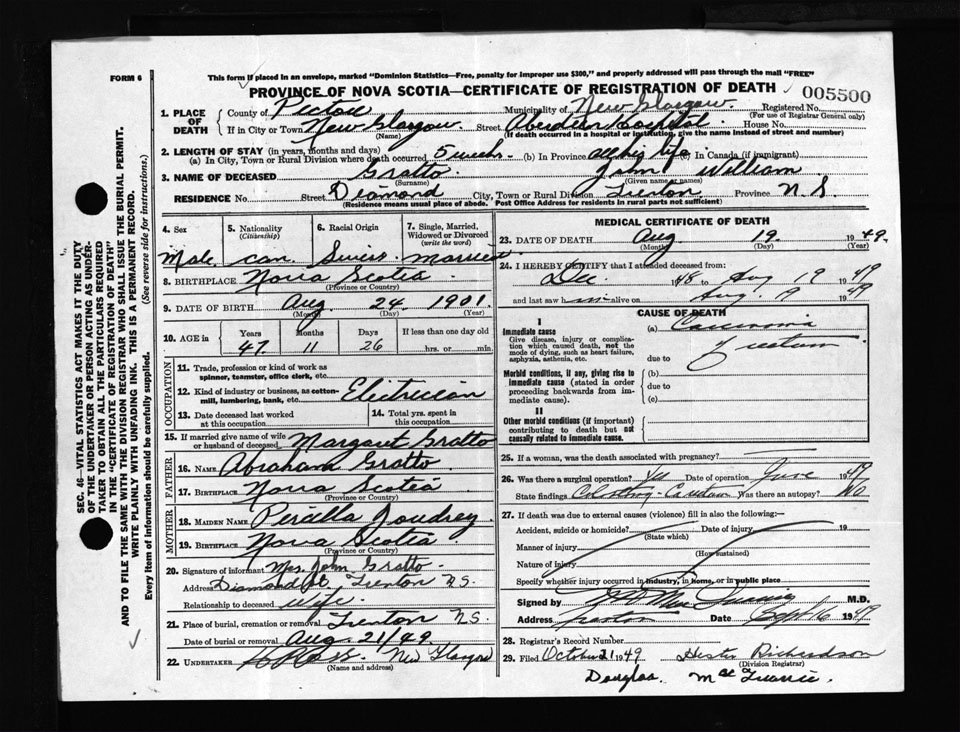 FORM 6
This form if placed in an envelope, marked "Dominion Statistics—Free, penalty for improper use $300," and properly addressed will pass through the mail "FREE"
PROVINCE OF NOVA SCOTIA—CERTIFICATE OF REGISTRATION OF DEATH
005500
SEC. 46—VITAL STATISTICS ACT MAKES IT THE DUTY
OF THE UNDERTAKER OR PERSON ACTING AS UNDER-
TAKER TO OBTAIN ALL THE PARTICULARS REQUIRED
IN THE "CERTIFICATE OF REGISTRATION OF DEATH"
AND TO FILE THE SAME WITH THE DIVISION REGISTRAR WHO SHALL ISSUE THE BURIAL PERMIT.
WRITE PLAINLY WITH UNFADING INK. THIS IS A PERMANENT RECORD.
Every item of information should be carefully supplied. (See reverse side for instructions.)
1. PLACE OF DEATH
County of Pictou Municipality of New Glasgow Registered No.
(For use of Registrar General only)
If in City or Town New Glasgow Street Aberdeen Hospital House No.
(Name) (If death occurred in a hospital or institution, give the name instead of street and number)
2. LENGTH OF STAY (in years, months and days)
(a) In City, Town or Rural Division where death occurred 5 weeks. (b) In Province all his life (c) In Canada (if immigrant)
3. NAME OF DECEASED Gratto John William
(Surname) (Given name or names)
RESIDENCE No. Street Diamond City, Town or Rural Division Trenton Province N.S.
(Residence means usual place of abode. Post Office Address for residents in rural parts not sufficient)
4. Sex
5. Nationality (Citizenship)
6. Racial Origin
7. Single, Married, Widowed or Divorced (write the word)
Male. Can. Swiss. Married
8. BIRTHPLACE Nova Scotia
(Province or Country)
9. DATE OF BIRTH Aug 24 1901
(Month) (Day) (Year)
10. AGE in Years Months Days If less than one day old
47 11 26 hrs. or min.
OCCUPATION
11. Trade, profession or kind of work as spinner, teamster, office clerk, etc.
12. Kind of industry or business, as cotton-mill, lumbering, bank, etc. Electrician
13. Date deceased last worked at this occupation
14. Total yrs. spent in this occupation
15. If married give name of wife or husband of deceased Margaret Gratto
FATHER
16. NAME Abraham Gratto
17. BIRTHPLACE Nova Scotia
(Province or Country)
MOTHER
18. MAIDEN NAME Percilla Joudrey
19. BIRTHPLACE Nova Scotia
(Province or Country)
20. Signature of informant Mrs. John Gratto
Address Diamond St, Trenton N.S.
Relationship to deceased Wife.
21. Place of burial, cremation or removal Trenton N.S.
Date of burial or removal Aug. 21/49
22. UNDERTAKER New Glasgow
(Name and address)
MEDICAL CERTIFICATE OF DEATH
23. DATE OF DEATH Aug 19. 1949.
(Month) (Day) (Year)
24. I HEREBY CERTIFY that I attended deceased from:
Dec 1948 to Aug 19 1949
and last saw him alive on Aug. 9 1949
CAUSE OF DEATH
I
Immediate cause
Give disease, injury or complication which caused death, not the mode of dying, such as heart failure, asphyxia, asthenia, etc.
(a) Carcinoma
due to
Morbid conditions, if any, giving rise to immediate cause (stated in order proceeding backwards from immediate cause).
(b)
due to
(c)
II
Other morbid conditions (if important) contributing to death but not causally related to immediate cause.
25. If a woman, was the death associated with pregnancy?
26. Was there a surgical operation? Yes Date of operation June 1949
State findings Was there an autopsy? No
27. If death was due to external causes (violence) fill in also the following:—
Accident, suicide or homicide? Date of injury 19
(State which)
Manner of injury
(How sustained)
Nature of injury
Specify whether injury occurred in industry, in home, or in public place
Signed by M.D.
Address Date Sept 16 1949
28. Registrar's Record Number
29. Filed October 21 1949 Hester Richardson
(Division Registrar)
Douglas